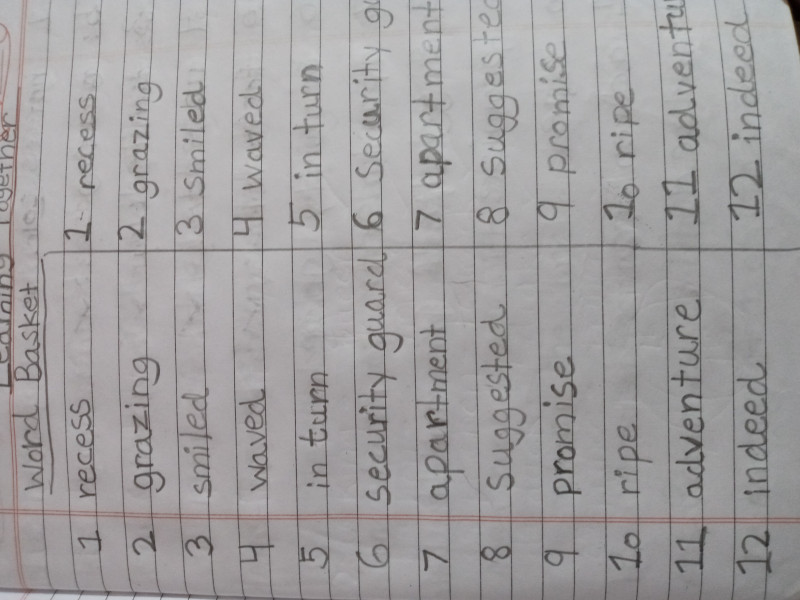 Learning Together
Word Basket
1 recess 1. recess
2 grazing 2 grazing
3 smiled 3 smiled
4 waved 4 waved
5 in turn 5 in turn
6 security guard 6 security gu
7 apartment 7 apartment
8 suggested 8 suggested
9 promise 9 promise
10 ripe 10 ripe
11 adventure 11 adventu
12 indeed 12 indeed